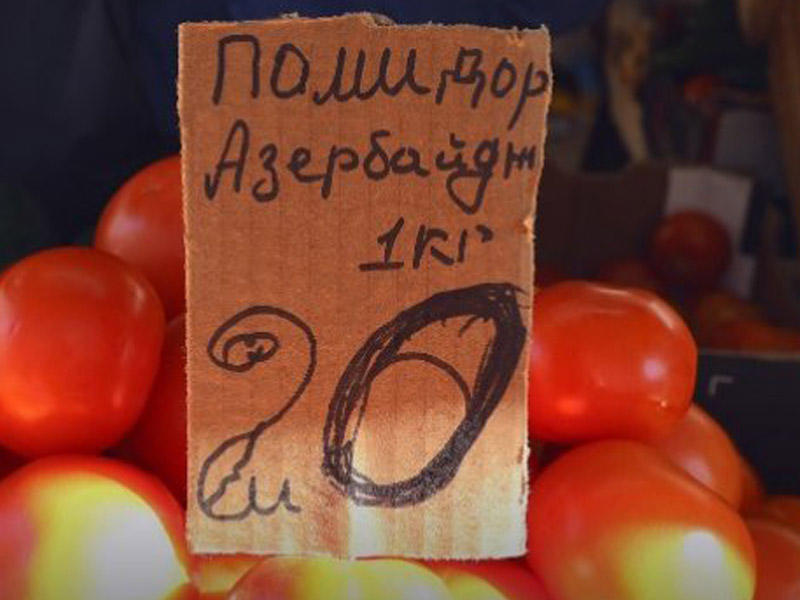 помидор
Азербайдж
1кг
20